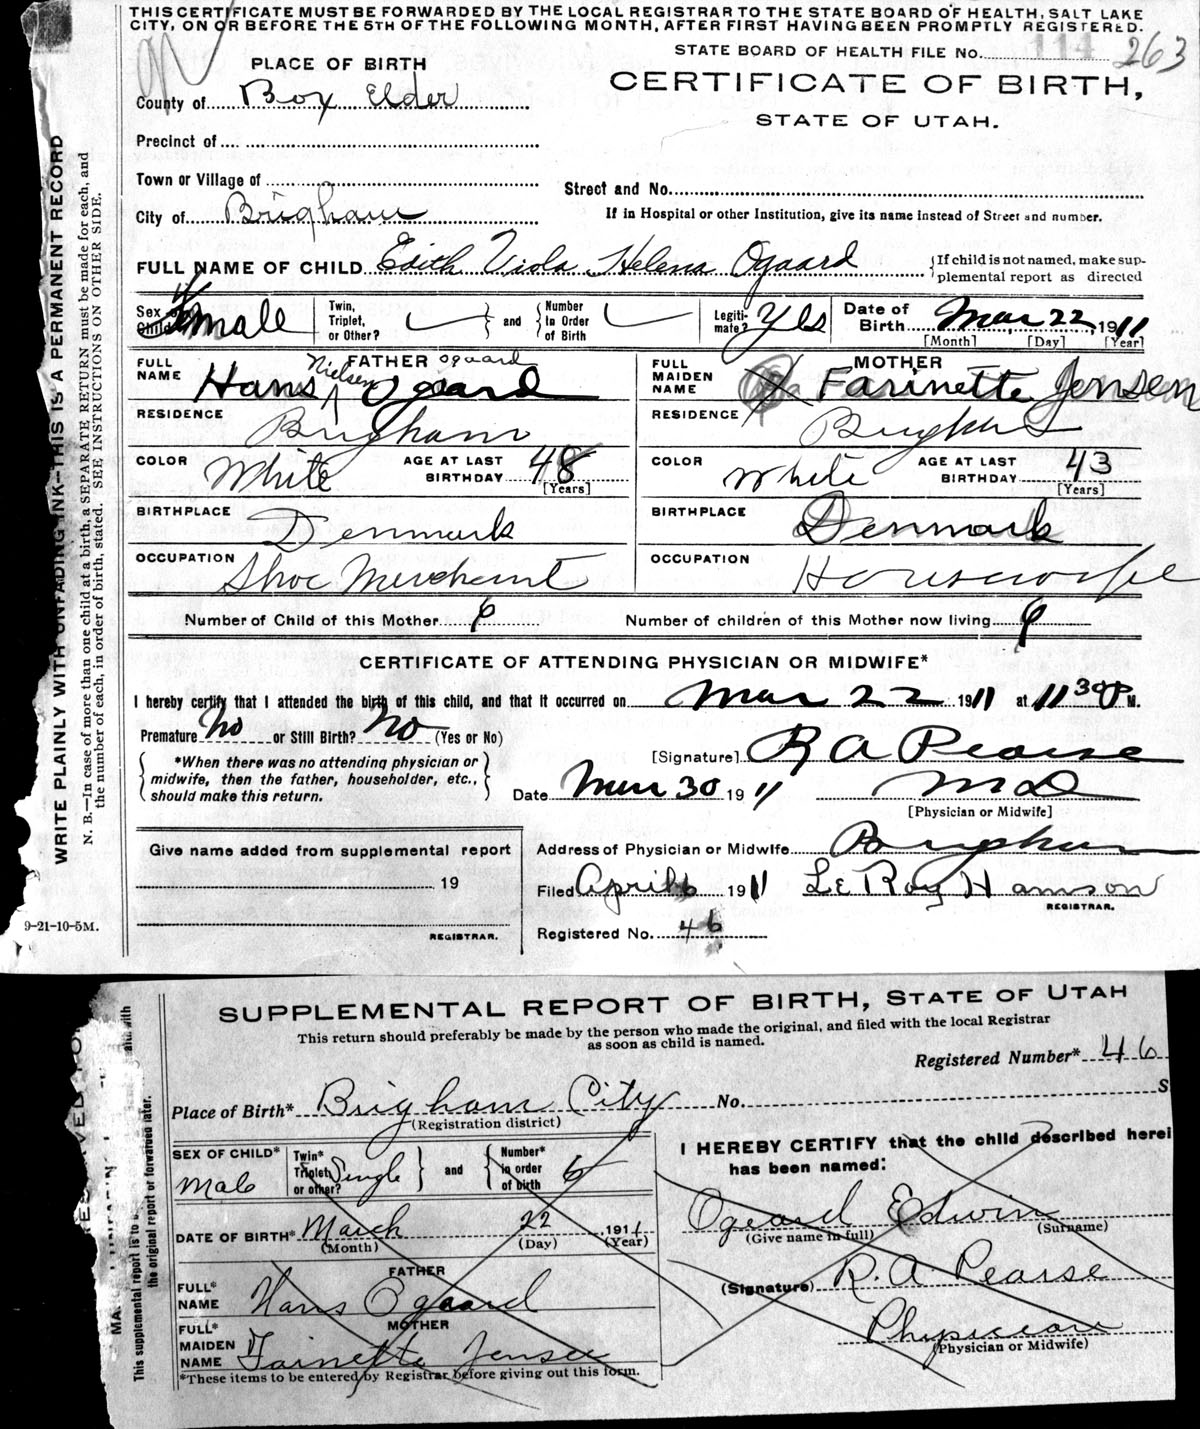 THIS CERTIFICATE MUST BE FORWARDED BY THE LOCAL REGISTRAR TO THE STATE BOARD OF HEALTH, SALT LAKE
CITY, ON OR BEFORE THE 5TH OF THE FOLLOWING MONTH, AFTER FIRST HAVING BEEN PROMPTLY REGISTERED.
STATE BOARD OF HEALTH FILE No. 114 263
PLACE OF BIRTH
CERTIFICATE OF BIRTH,
STATE OF UTAH.
County of Box Elder
Precinct of
Town or Village of
Street and No.
City of Brigham
If in Hospital or other Institution, give its name instead of Street and number.
FULL NAME OF CHILD Edith Viola Helena Ogaard
{If child is not named, make supplemental report as directed
Sex of Child Female
Twin, Triplet, or Other?
and
Number In Order of Birth
Legitimate? Yes
Date of Birth Mar 22 1911
[Month] [Day] [Year]
FATHER
FULL NAME Hans Nielsen Ogaard
ogaard
MOTHER
FULL MAIDEN NAME Farinette Jensen
RESIDENCE Brigham
RESIDENCE
COLOR White
AGE AT LAST BIRTHDAY 48
[Years]
COLOR White
AGE AT LAST BIRTHDAY 43
[Years]
BIRTHPLACE Denmark
BIRTHPLACE Denmark
OCCUPATION Shoe Merchant
OCCUPATION Housewife
Number of Child of this Mother 6
Number of children of this Mother now living
CERTIFICATE OF ATTENDING PHYSICIAN OR MIDWIFE*
I hereby certify that I attended the birth of this child, and that it occurred on Mar 22 1911 at 11 30 P M.
Premature No or Still Birth? No (Yes or No)
*When there was no attending physician or
midwife, then the father, householder, etc.,
should make this return.
[Signature] R A Pearse
Date Mar 30 1911 MD
[Physician or Midwife]
Give name added from supplemental report
19
REGISTRAR.
Address of Physician or Midwife Brigham
Filed April 6 1911 LeRoy Hamson
REGISTRAR.
Registered No. 46
WRITE PLAINLY WITH UNFADING INK—THIS IS A PERMANENT RECORD
N. B.—In case of more than one child at a birth, a SEPARATE RETURN must be made for each, and
the number of each, in order of birth, stated. SEE INSTRUCTIONS ON OTHER SIDE.
9-21-10-5M.
SUPPLEMENTAL REPORT OF BIRTH, STATE OF UTAH
This return should preferably be made by the person who made the original, and filed with the local Registrar
as soon as child is named.
Registered Number* 46
Place of Birth* Brigham City No. S
(Registration district)
SEX OF CHILD* Male
Twin* Triplet or other? Single
and
Number* in order of birth 6
I HEREBY CERTIFY that the child described herei
has been named:
DATE OF BIRTH* March 22 1911
(Month) (Day) (Year)
Ogeard Edwin
(Give name in full) (Surname)
FATHER
FULL* NAME Hans Ogaard
(Signature) R. A Pearse
MOTHER
FULL* MAIDEN NAME Fainette Jensee
Physician
(Physician or Midwife)
*These items to be entered by Registrar before giving out this form.
This supplemental report is to
the original report or forwarded later.